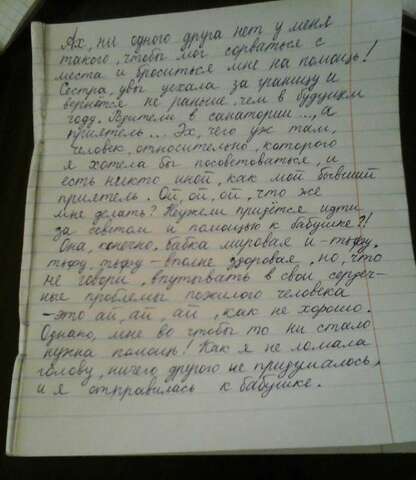 Ах, ни одного друга нет у меня
такого, чтобы мог сорваться с
места и броситься мне на помощь!
Сестра, увы уехала за границу и
вернется не раньше, чем в будущем
году. Родители в санатории..., а
приятель... Эх, чего уж там,
человек, относительно, которого
я хотела бы посоветоваться, и
есть никто иной, как мой бывший
приятель. Ой, ой, ой, что же
мне делать? Неужели придётся идти
за советом и помощью к бабушке?!
Она, конечно, бабка мировая и - тьфу,
тьфу, тьфу - вполне здоровая, но, что
не говори, впутывать в свои сердеч-
ные проблемы пожилого человека
- это ай, ай, ай, как не хорошо.
Однако, мне во чтобы то ни стало
нужна помощь! Как я не ломала
голову, ничего другого не придумалось,
и я отправилась к бабушке.